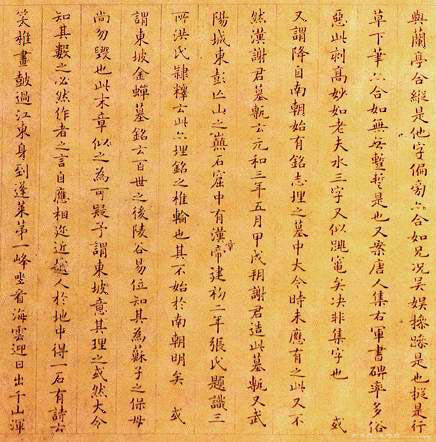 與蘭亭合縱是他字偏旁亦合如兄况矣娛接踵是也挺是行
草下筆亦合如無㤀蹔誓是也又案唐人集右軍書碑率多俗
惡此刻高妙如老夫水三字又似興竈矣决非集字也 或
又謂降自南朝始有銘志埋之墓中大令時未應有此又不
然漢謝君墓甎云元和三年五月甲戌朔謝君造此墓甎又武
陽城東彭亾山之巔石窟中有漢章帝建初二年張氏題識三
所洪氏隸釋云此亦埋銘之椎輪也其不始於南朝明矣 或
謂東坡金蟬墓銘云百世之後陵谷易位知其為蘇子之保母
尚勿毀也此末章似之為可疑予謂東坡意其理之或然大令
知其數之必然作者之言自應相近近越人於地中得一石有詩云
笑推畫鼓過江東身到蓬萊第一峰坐看海雲迎日出千山渾